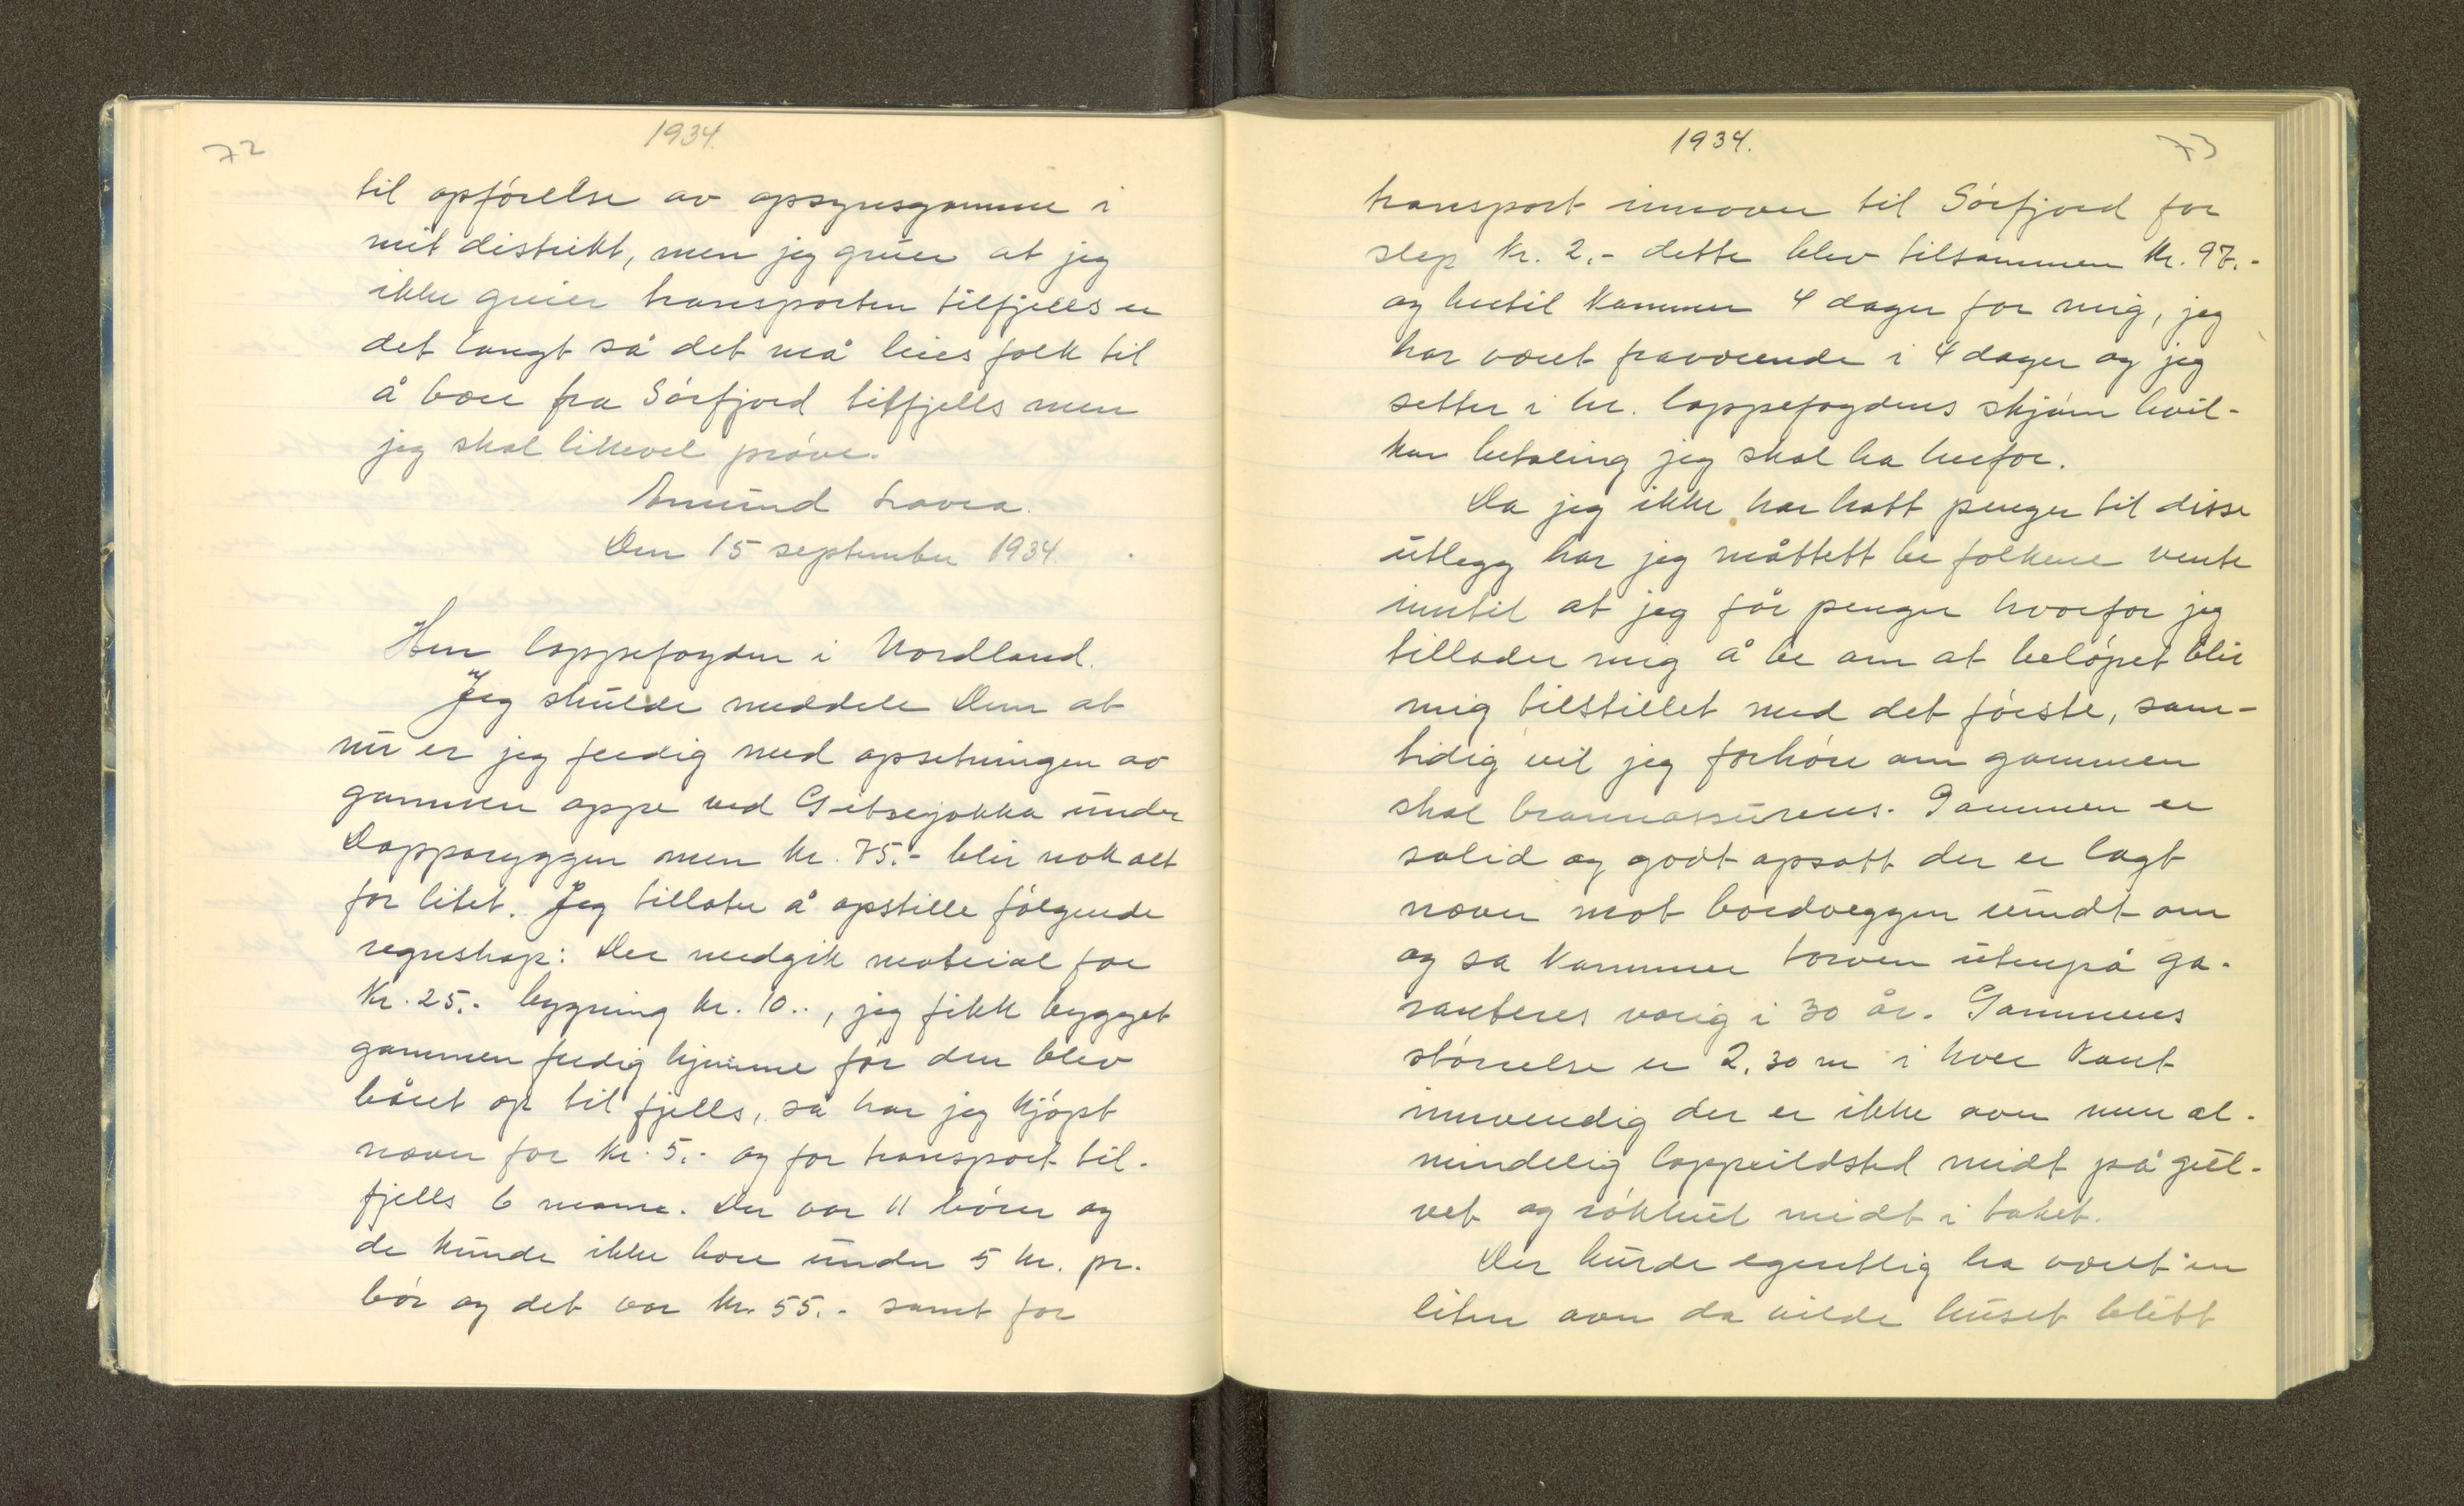 72
1934.
til opførelse av opsynsgamme i
mit distrikt, men jeg gruer at jeg
ikke greier transporten tilfjells er
det langt så det må leies folk til
å bære fra Sørfjord tilfjells men
jeg skal likevel prøve.
Amund Lavra.
Den 15 september 1934.
Herr lappefogden i Nordland.
Jeg skulde meddele Dem at
nu er jeg ferdig med opsetningen av
gammen oppe ved Gitsejokka under
Dapparyggen men kr. 75.- blir nok alt
for litet. Jeg tillater å opstille følgende
regnskap: Der medgik material for
kr. 25.- bygning kr. 10.-, jeg fikk bygget
gammen ferdig hjemme før den blev
båret op til fjells, så har jeg kjøpt
næver for kr. 5.- og for transport til-
fjells 6 manne. Der var 11 bører og
de kunde ikke bære under 5 kr. pr.
bør og det var kr. 55.- samt for
1934.
73
transport innover til Sørfjord for
slep kr. 2.- dette blev tilsammen kr. 97.-
og hertil kommer 4 dager for mig, jeg
har været fraværende i 4 dager og jeg
setter i hr. lappefogdens skjønn hvil-
ken betaling jeg skal ha herfor.
Da jeg ikke har hatt penger til disse
utlegg har jeg måttett be folkene vente
inntil at jeg får penger hvorfor jeg
tillader mig å be om at beløpet blir
mig tilstillet med det første, sam-
tidig vil jeg forhøre om gammen
skal brannassureres. Gammen er
solid og godt opsatt der er lagt
næver mot bordveggen rundt om
og sa kommer torven utenpå ga-
ranteres varig i 30 år. Gammens
størrelse er 2,30 m i hver kant
innvendig der er ikke ovn men al-
mindelig lappeildsted midt på gul-
vet og røkhul midt i taket.
Der burde egentlig ha været en
liten ovn da vilde huset blitt